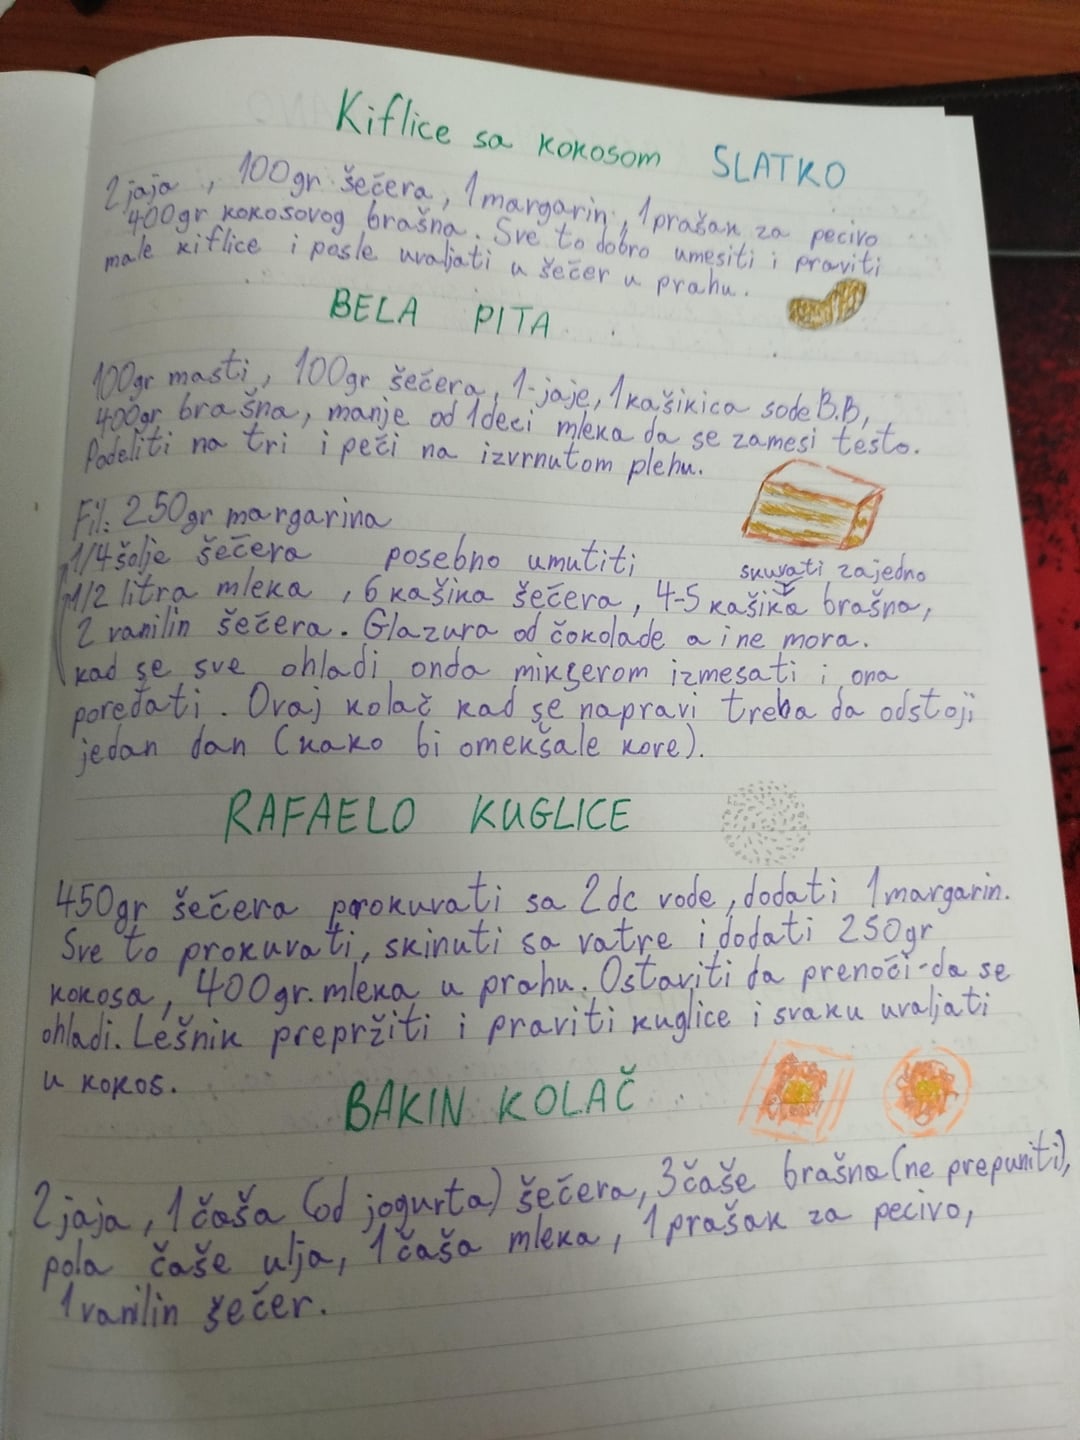 Kiflice sa kokosom SLATKO
2 jaja, 100gr šečera, 1 margarin, 1 prašak za pecivo
400gr kokosovog brašna. Sve to dobro umesiti i praviti
male kiflice i posle uvaljati u šečer u prahu.
BELA PITA
100gr masti, 100gr šečera, 1-jaje, 1 kašikica sode B.B,
400gr brašna, manje od 1 deci mleka da se zamesi testo.
Podeliti na tri i peči na izvrnutom plehu.
Fil: 250gr margarina
1/4 šolje šečera posebno umutiti
skuvati zajedno
1/2 litra mleka, 6 kašika šečera, 4-5 kašika brašna,
2 vanilin šečera. Glazura od čokolade a i ne mora.
kad se sve ohladi onda mikserom izmesati i ona
poređati. Ovaj kolač kad se napravi treba da odstoji
jedan dan (kako bi omekšale kore).
RAFAELO KUGLICE
450gr šečera prokuvati sa 2dc vode, dodati 1 margarin.
Sve to prokuvati, skinuti sa vatre i dodati 250gr
kokosa, 400gr. mleka u prahu. Ostaviti da prenoči-da se
ohladi. Lešnik prepržiti i praviti kuglice i svaku uvaljati
u kokos.
BAKIN KOLAČ
2 jaja, 1 čaša (od jogurta) šečera, 3 čaše brašna (ne prepuniti),
pola čaše ulja, 1 čaša mleka, 1 prašak za pecivo,
1 vanilin šečer.